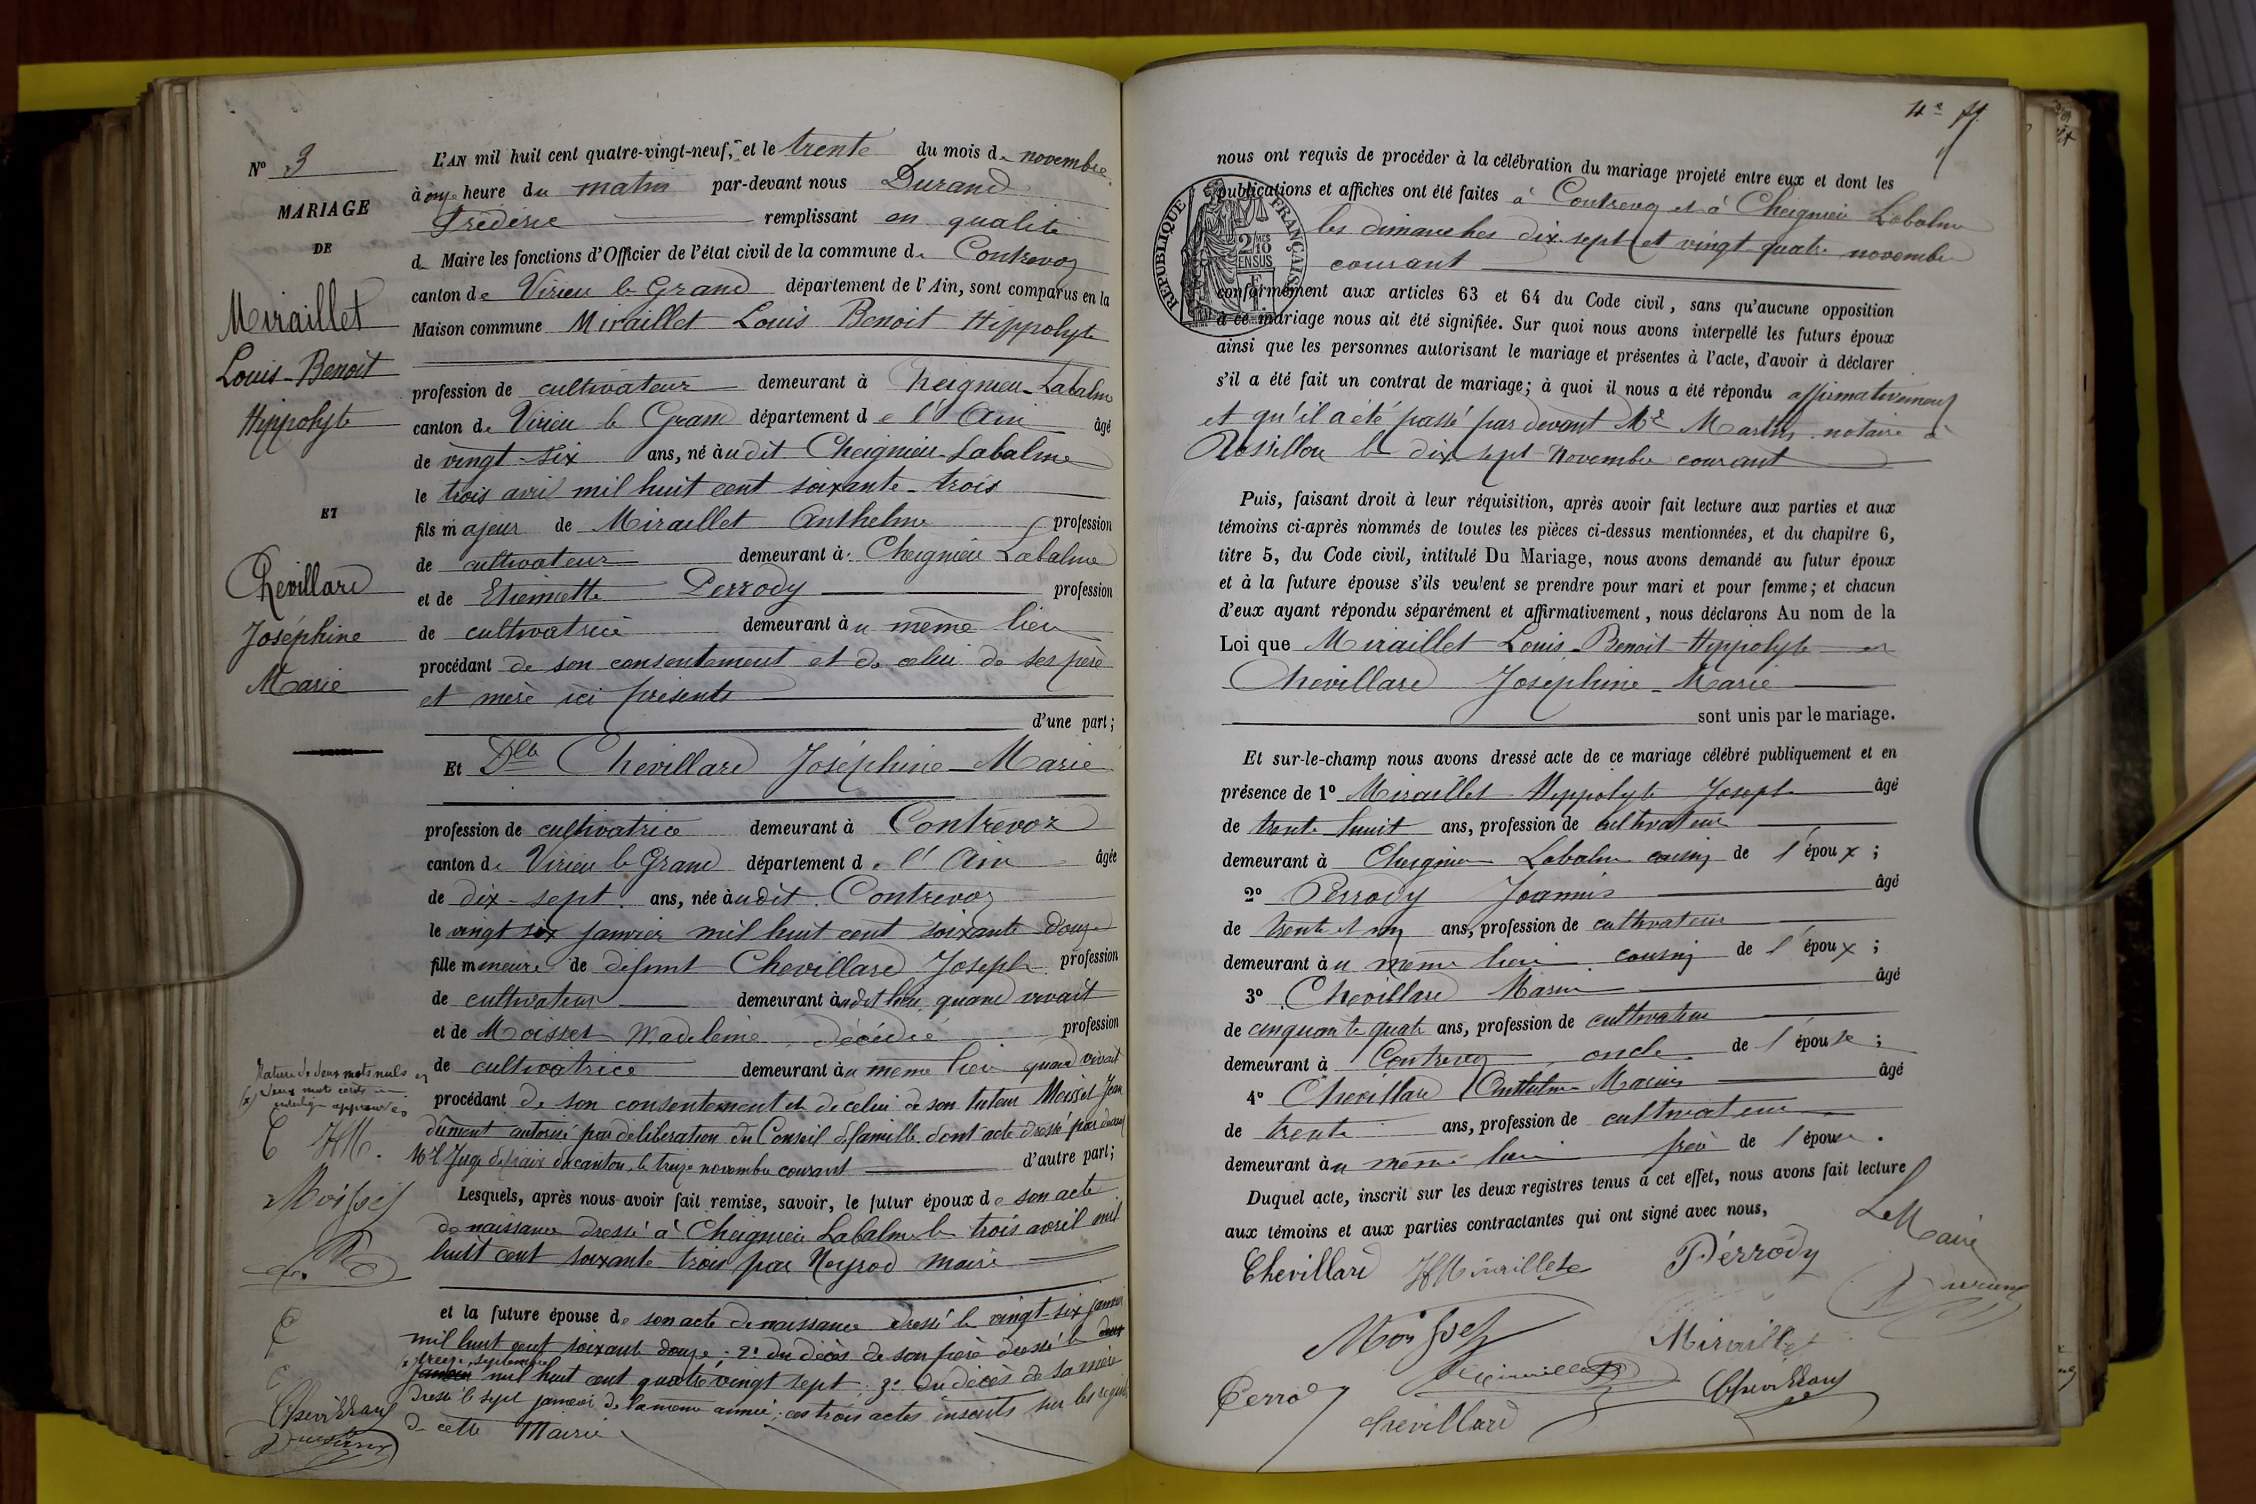 N° 3
MARIAGE
DE
Miraillet
Louis-Benoit
Hippolyte
ET
Chevillard
Joséphine
Marie
L'AN mil huit cent quatre-vingt-neuf, et le trente du mois de novembre
à onze heure du matin par-devant nous Durand
Fréderic remplissant en qualité
de Maire les fonctions d'Officier de l'état civil de la commune de Contrevoz
canton de Virieu le Grand département de l'Ain, sont comparus en la
Maison commune Miraillet Louis Benoit Hippolyte
profession de cultivateur demeurant à Cheignieu-Labalme
canton de Virieu le Grand département de l'Ain âgé
de vingt-six ans, né audit Cheignieu-Labalme
le trois avril mil huit cent soixante-trois
fils majeur de Miraillet Anthelme profession
de cultivateur demeurant à Cheignieu Labalme
et de Etiennette Perrody profession
de cultivatrice demeurant au même lieu
procédant de son consentement et de celui de ses père
et mère ici présents
d'une part;
Et Dlle Chevillard Joséphine-Marie
profession de cultivatrice demeurant à Contrevoz
canton de Virieu le Grand département de l'Ain âgée
de dix-sept ans, née audit Contrevoz
le vingt six janvier mil huit cent soixante douze
fille mineure de defunt Chevillard Joseph profession
de cultivateur demeurant audit lieu quand vivait
et de Moisset Madeleine décédée profession
de cultivatrice demeurant au même lieu quand vivait
procédant de son consentement et de celui de son tuteur Moisset Jean
dûment autorisé par délibération du Conseil de famille dont acte dressé par devant
Mr le Juge de paix du canton le treize novembre courant d'autre part;
Lesquels, après nous avoir fait remise, savoir, le futur époux de son acte
de naissance dressé à Cheignieu Labalme le trois avril mil
huit cent soixante trois par Neyrod maire
et la future épouse de son acte de naissance dressé le vingt-six janvier
mil huit cent soixante douze. 2° du décès de son père dressé le
treize septembre
mil huit cent quatre vingt sept; 3° du décès de sa mère
dressé le sept janvier de la même année; ces trois actes inscrits sur les registres
de cette Mairie
Rature de deux mots nuls
(x) deux mots écrits en
interligne approuvés
HM.
Moisset
Chevillard
nous ont requis de procéder à la célébration du mariage projeté entre eux et dont les
publications et affiches ont été faites à Contrevoz et à Cheignieu Labalme
les dimanches dix-sept et vingt quatre novembre
courant
RÉPUBLIQUE FRANÇAISE
2 MES 10
EN SUS
conformément aux articles 63 et 64 du Code civil, sans qu'aucune opposition
à ce mariage nous ait été signifiée. Sur quoi nous avons interpellé les futurs époux
ainsi que les personnes autorisant le mariage et présentes à l'acte, d'avoir à déclarer
s'il a été fait un contrat de mariage; à quoi il nous a été répondu affirmativement
et qu'il a été passé par devant Me Martin notaire à
Rossillon le dix sept Novembre courant
Puis, faisant droit à leur réquisition, après avoir fait lecture aux parties et aux
témoins ci-après nommés de toutes les pièces ci-dessus mentionnées, et du chapitre 6,
titre 5, du Code civil, intitulé Du Mariage, nous avons demandé au futur époux
et à la future épouse s'ils veulent se prendre pour mari et pour femme; et chacun
d'eux ayant répondu séparément et affirmativement, nous déclarons Au nom de la
Loi que Miraillet Louis-Benoit-Hippolyte et
Chevillard Joséphine-Marie
sont unis par le mariage.
Et sur-le-champ nous avons dressé acte de ce mariage célébré publiquement et en
présence de 1° Miraillet Hippolyte Joseph âgé
de trente huit ans, profession de cultivateur
demeurant à Cheignieu Labalme cousin de l'époux;
2° Perrody Joannis âgé
de trente et un ans, profession de cultivateur
demeurant au même lieu cousin de l'époux;
3° Chevillard Marin âgé
de cinquante quatre ans, profession de cultivateur
demeurant à Contrevoz oncle de l'épouse;
4° Chevillard Anthelme Marius âgé
de trente ans, profession de cultivateur
demeurant au même lieu frère de l'épouse.
Duquel acte, inscrit sur les deux registres tenus à cet effet, nous avons fait lecture
aux témoins et aux parties contractantes qui ont signé avec nous,
Le Maire
Chevillard HMiraillet Perrody
Durand
Moisset Miraillet
Perrody Chevillard
Chevillard